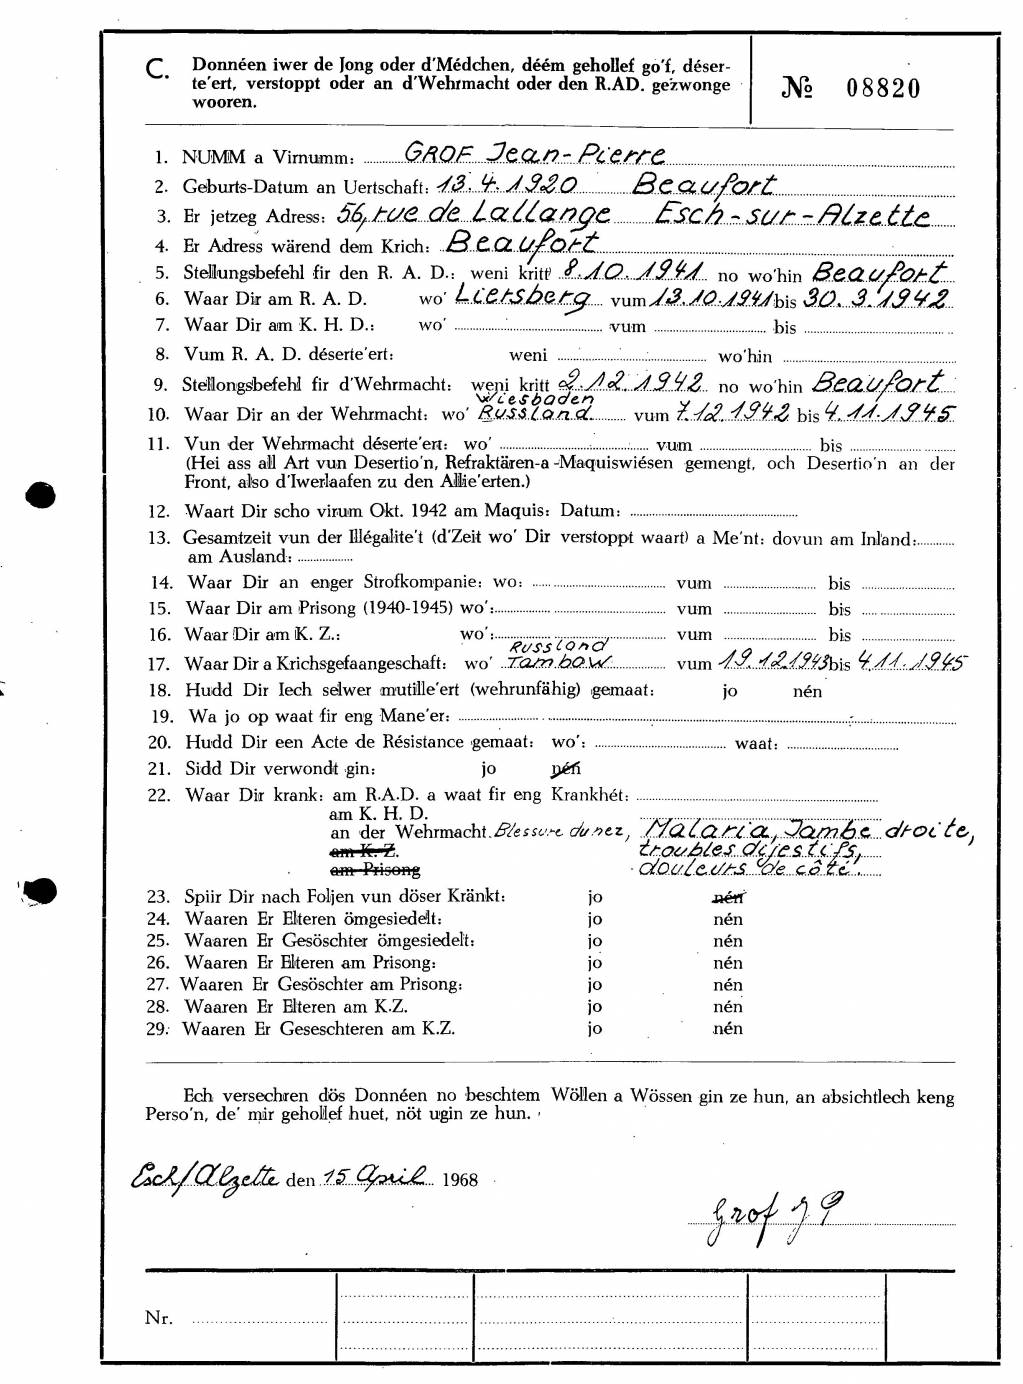 C. Donnéen iwer de Jong oder d'Médchen, déém gehollef go'f, déser-
te'ert, verstoppt oder an d'Wehrmacht oder den R.AD. gezwonge
wooren.
№ 08820
1. NUMM a Virnumm: GROF Jean-Pierre
2. Geburts-Datum an Uertschaft: 13.4.1920 Beaufort
3. Er jetzeg Adress: 56, rue de Lallange Esch-sur-Alzette
4. Er Adress wärend dem Krich: Beaufort
5. Stellungsbefehl fir den R. A. D.: weni kritt 8.10.1941 no wo'hin Beaufort
6. Waar Dir am R. A. D. wo' Liersberg vum 13.10.1941 bis 30.3.1942
7. Waar Dir am K. H. D.: wo' vum bis
8. Vum R. A. D. déserte'ert: weni wo'hin
9. Stellongsbefehl fir d'Wehrmacht: weni kritt 2.12.1942 no wo'hin Beaufort
Wiesbaden
10. Waar Dir an der Wehrmacht: wo' Russland vum 7.12.1942 bis 4.11.1945
11. Vun der Wehrmacht déserte'ert: wo' vum bis
(Hei ass all Art vun Desertio'n, Refraktären-a -Maquiswiésen gemengt, och Desertio'n an der
Front, also d'Iwerlaafen zu den Allie'erten.)
12. Waart Dir scho virum Okt. 1942 am Maquis: Datum:
13. Gesamtzeit vun der Illégalite't (d'Zeit wo' Dir verstoppt waart) a Me'nt: dovun am Inland:
am Ausland:
14. Waar Dir an enger Strofkompanie: wo: vum bis
15. Waar Dir am Prisong (1940-1945) wo': vum bis
16. Waar Dir am K. Z.: wo': vum bis
Russland
17. Waar Dir a Krichsgefaangeschaft: wo' Tambow vum 19.12.1943 bis 4.11.1945
18. Hudd Dir Iech selwer mutille'ert (wehrunfähig) gemaat: jo nén
19. Wa jo op waat fir eng Mane'er:
20. Hudd Dir een Acte de Résistance gemaat: wo': waat:
21. Sidd Dir verwondt gin: jo nén
22. Waar Dir krank: am R.A.D. a waat fir eng Krankhét:
am K. H. D.
an der Wehrmacht Blessure du nez, Malaria, Jambe droite,
am K. Z. troubles dijestifs,
am Prisong douleurs de côté.
23. Spiir Dir nach Foljen vun döser Kränkt: jo nén
24. Waaren Er Elteren ömgesiedelt: jo nén
25. Waaren Er Gesöschter ömgesiedelt: jo nén
26. Waaren Er Elteren am Prisong: jo nén
27. Waaren Er Gesöschter am Prisong: jo nén
28. Waaren Er Elteren am K.Z. jo nén
29. Waaren Er Geseschteren am K.Z. jo nén
Ech versechren dös Donnéen no beschtem Wöllen a Wössen gin ze hun, an absichtlech keng
Perso'n, de' mir gehollef huet, nöt ugin ze hun.
Esch/Alzette den 15 April 1968
Grof J P
Nr.